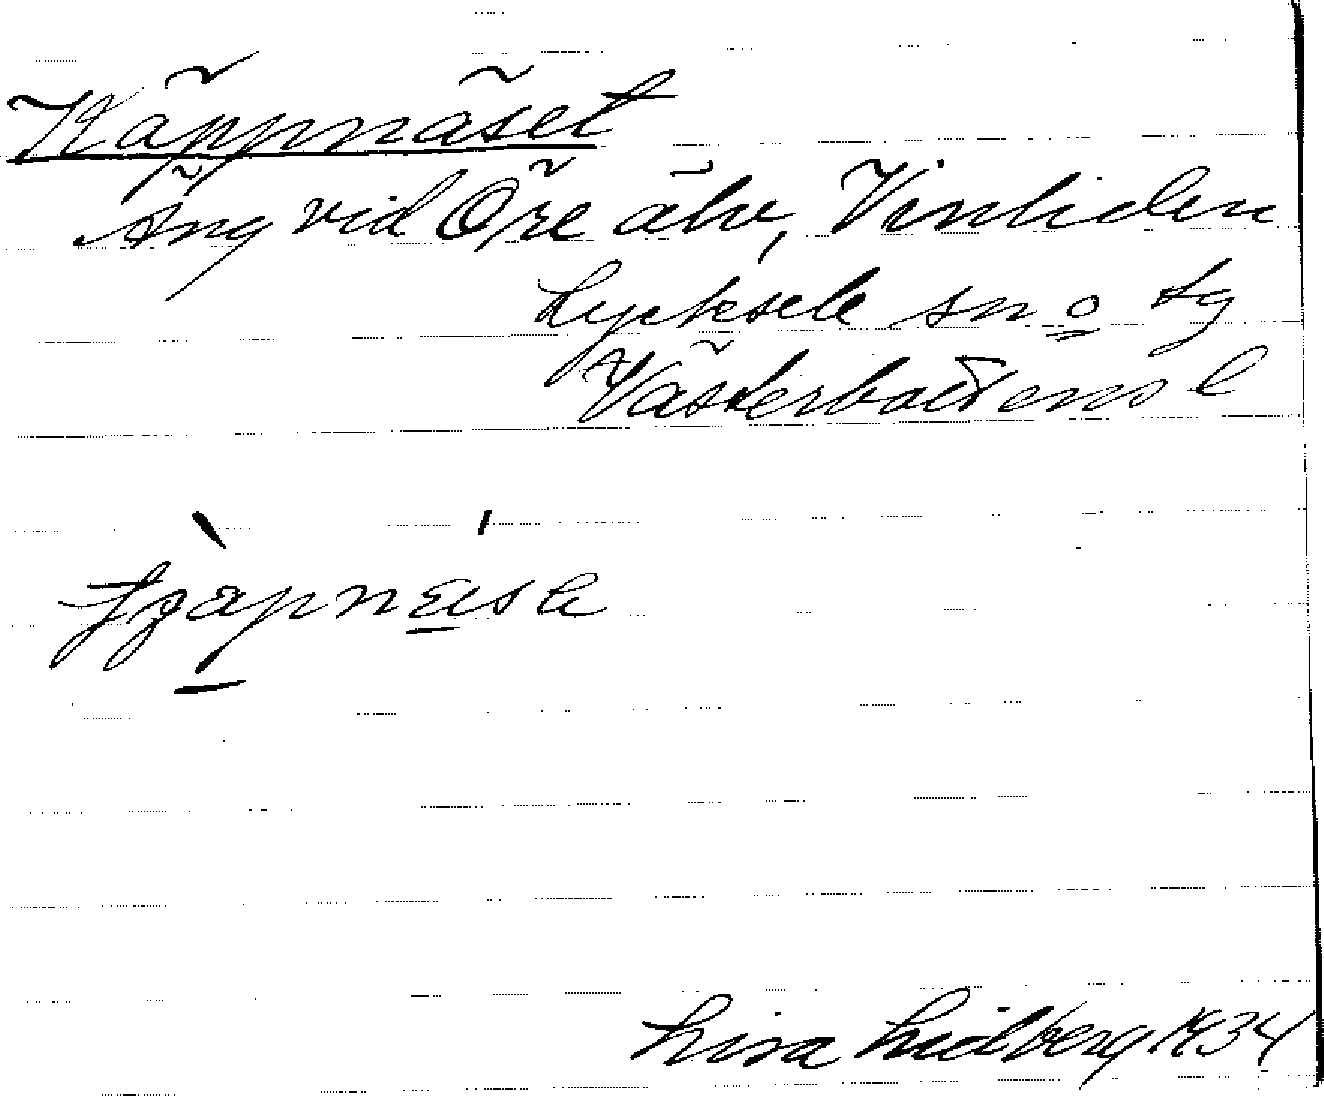 Käppnäset
Äng vid Öre älv, Vinliden
Lycksele sn o tg
Västerbottens l
Lisa Lidberg 1934